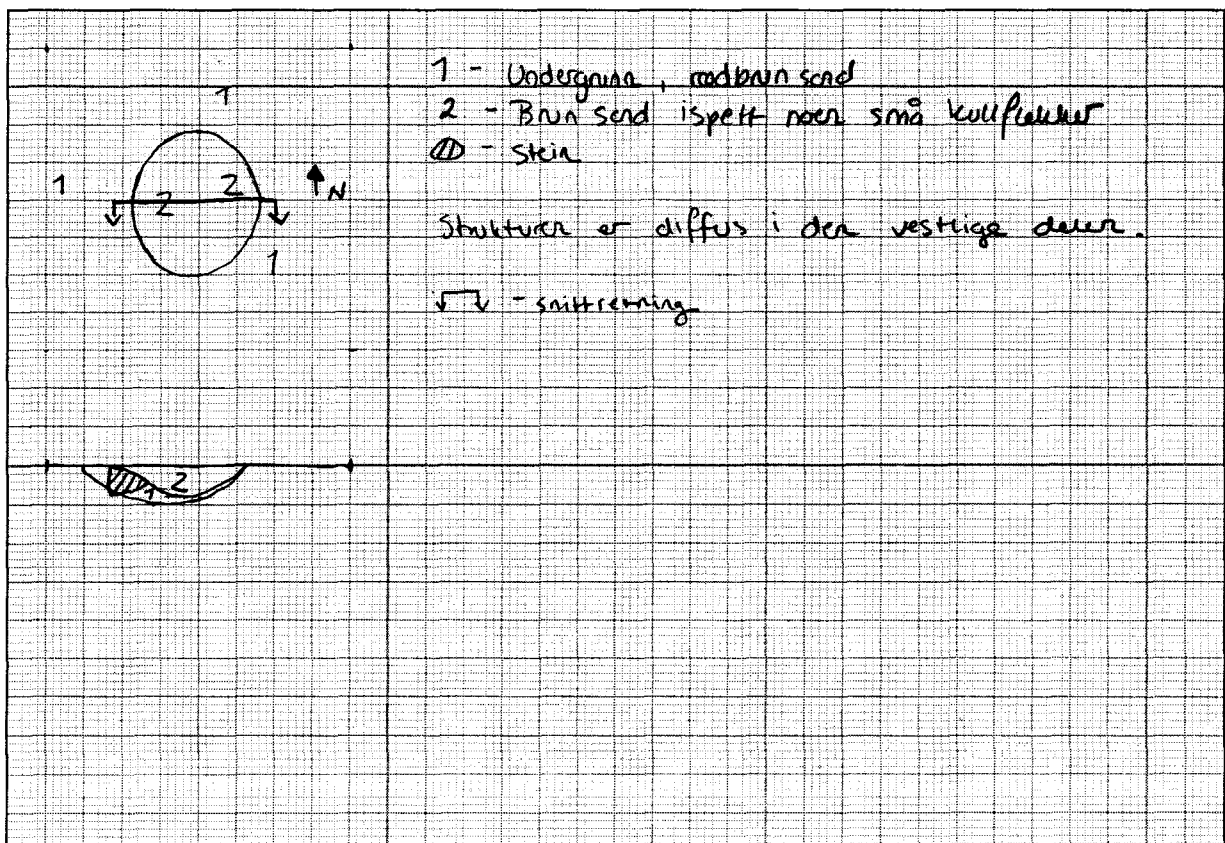 1
1
2
2
N
1
1 - Undergrunn, rødbrun sand
2 - Brun sand ispett noen små kullflekker
- Stein
Strukturen er diffus i den vestlige delen.
- snittretning
2
1